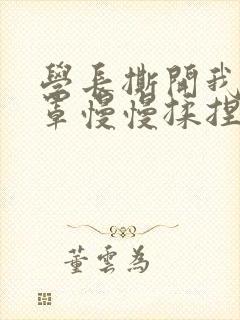 學長撕開我
罩慢慢揉捏
董雲為